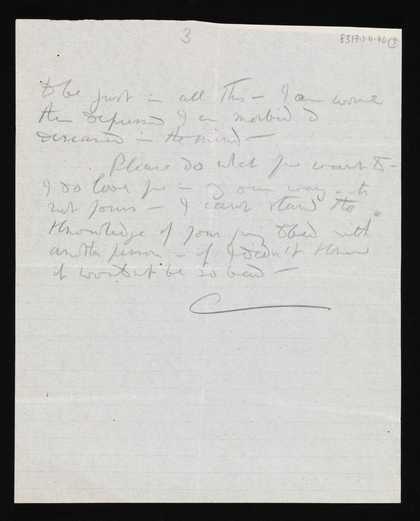 3
to be just in all this – I am worse
than depressed I am morbid &
diseased in the mind –
Please do what you want to –
I do love you – my own way – its
not yours – I cannot stand the
knowledge of your going to bed with
another person – if I didn't know
it wouldn't be so bad –
C